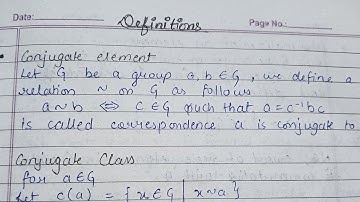 Date:
Definitions
Page No.:
Conjugate element
Let G be a group a, b ∈ G, we define a
relation ~ on G as follows
a ~ b ⇔ c ∈ G such that a = c⁻¹bc
is called correspondence a is conjugate to
Conjugate Class
for a ∈ G
Let c(a) = { x ∈ G | x ~ a }